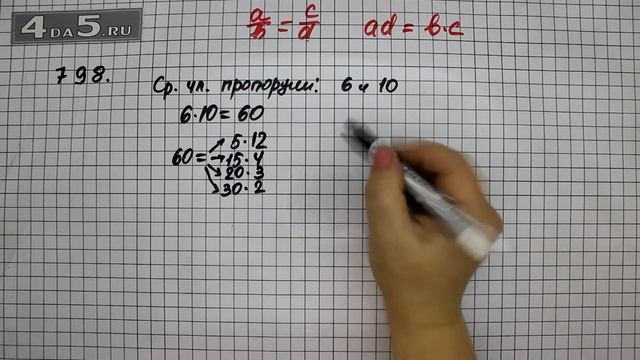 4DA5.RU
a/b = c/d ad = b·c
798.
Ср. чл. пропорции: 6 и 10
6·10=60
60= 5·12
15·4
20·3
30·2